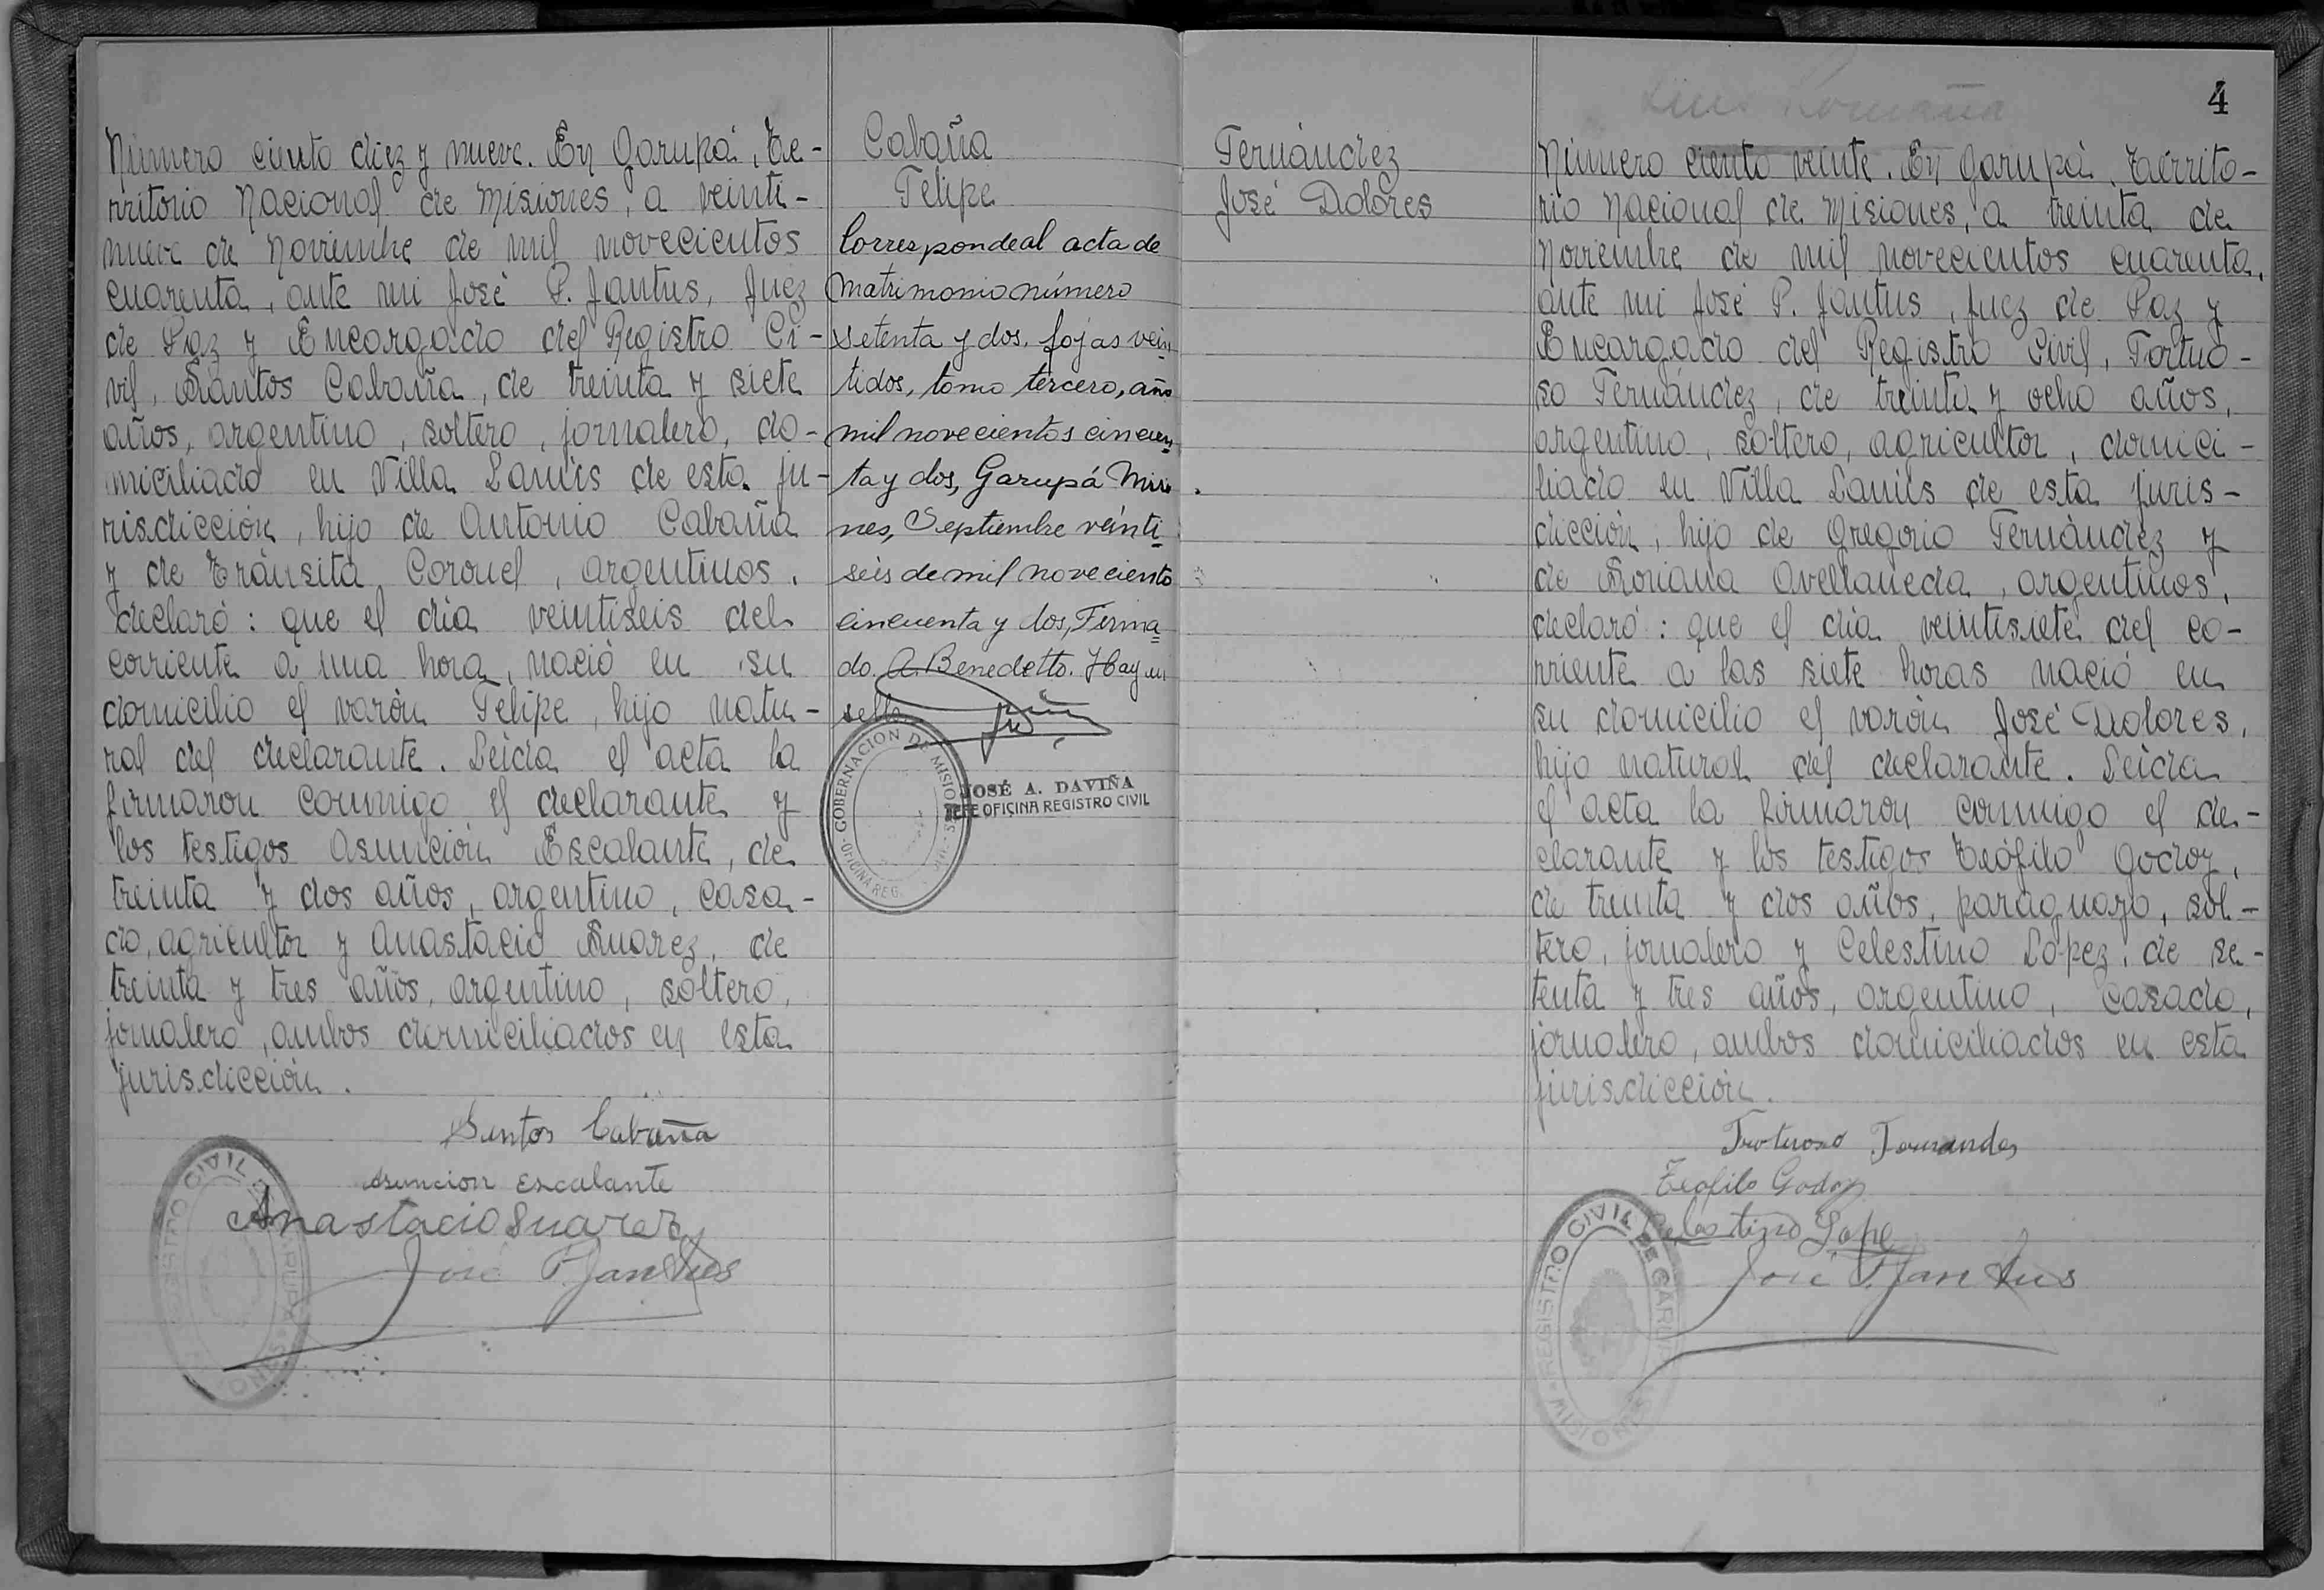 Número ciento diez y nueve. En Garupá, Te-
rritorio Nacional de Misiones, a veinti-
nueve de Noviembre de mil novecientos
cuarenta, ante mi José P. Jantus, Juez
de Paz y Encargado del Registro Ci-
vil, Santos Cabaña, de treinta y siete
años, argentino, soltero, jornalero, do-
miciliado en Villa Lanús de esta ju-
risdicción, hijo de Antonio Cabaña
y de Tránsita Coronel, argentinos,
declaró: que el día veintiseis del
corriente a una hora, nació en su
domicilio el varón Felipe, hijo natu-
ral del declarante. Leída el acta la
firmaron conmigo el declarante y
los testigos Asunción Escalante, de
treinta y dos años, argentino, casa-
do, agricultor y Anastacio Suarez, de
treinta y tres años, argentino, soltero,
jornalero, ambos domiciliados en esta
jurisdicción.
Santos Cabaña
Asuncion Escalante
Anastacio Suarez
José P. Jantus
REGISTRO CIVIL
Cabaña
Felipe
Corresponde al acta de
matrimonio número
setenta y dos, fojas vein
tidos, tomo tercero, año
mil novecientos cincuen
ta y dos, Garupá Misio
nes, Septiembre veinti
seis de mil noveciento
cincuenta y dos, Firma
do. A. Benedetto. Hay un
sello.
GOBERNACION DE MISIONES
OFICINA REG.
JOSÉ A. DAVIÑA
JEFE OFICINA REGISTRO CIVIL
Fernández
José Dolores
4
Luis Romaña
Número ciento veinte. En Garupá, Territo-
rio Nacional de Misiones, a treinta de
Noviembre de mil novecientos cuarenta,
ante mi José P. Jantus, Juez de Paz y
Encargado del Registro Civil, Fortuo-
so Fernández, de treinta y ocho años,
argentino, soltero, agricultor, domici-
liado en Villa Lanús de esta juris-
dicción, hijo de Gregorio Fernández y
de Soriana Avellaneda, argentinos,
declaró: que el día veintisiete del co-
rriente a las siete horas nació en
su domicilio el varón José Dolores,
hijo natural del declarante. Leída
el acta la firmaron conmigo el de-
clarante y los testigos Teófilo Godoy,
de treinta y dos años, paraguayo, sol-
tero, jornalero y Celestino López, de se-
tenta y tres años, argentino, casado,
jornalero, ambos domiciliados en esta
jurisdicción.
Teofilo Godoy
Celestino Lope
José P. Jantus
REGISTRO CIVIL DE GARUPA
MISIONES